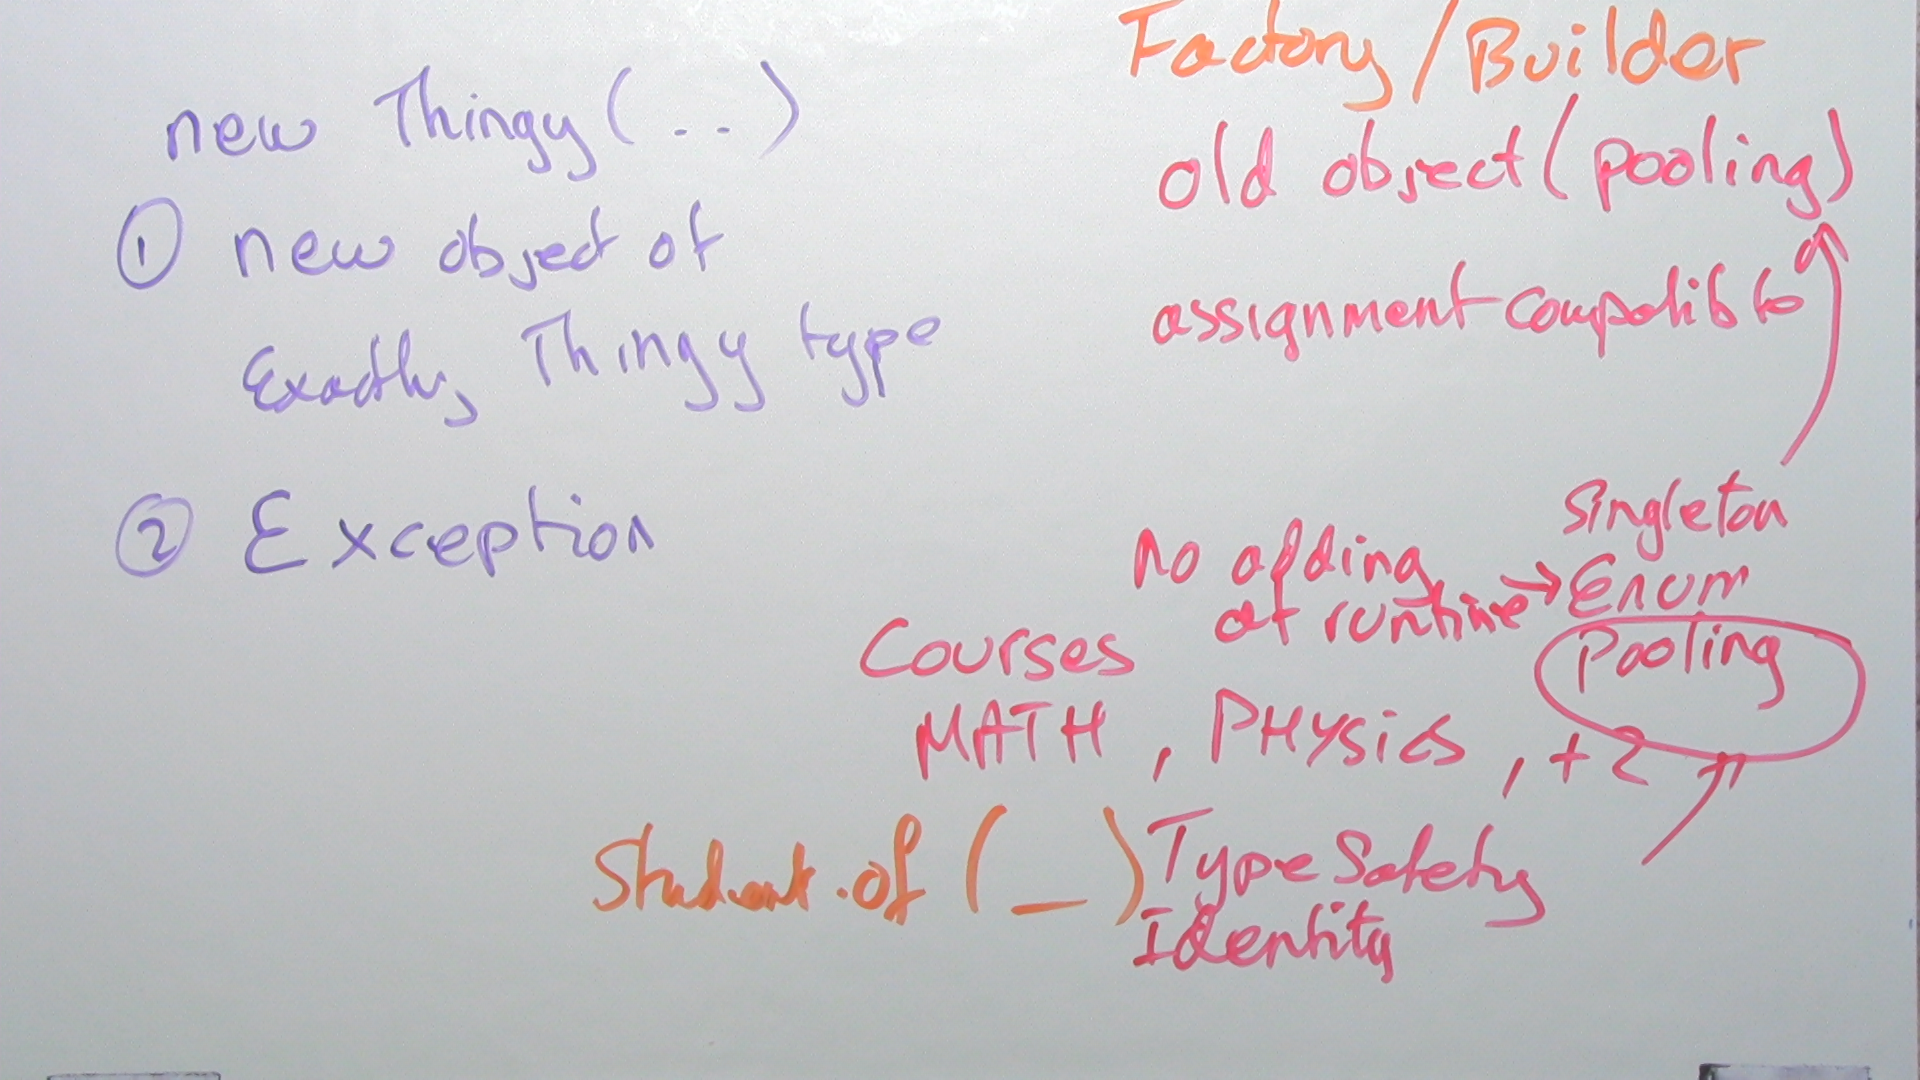 new Thingy (..)
① new object of
Exactly Thingy type
② Exception
Factory/Builder
old object (pooling)
assignment compatible
Singleton
no adding
at runtime → Enum
Pooling
Courses
MATH, PHYSICS, +2
Student.of (_)
Type Safety
Identity